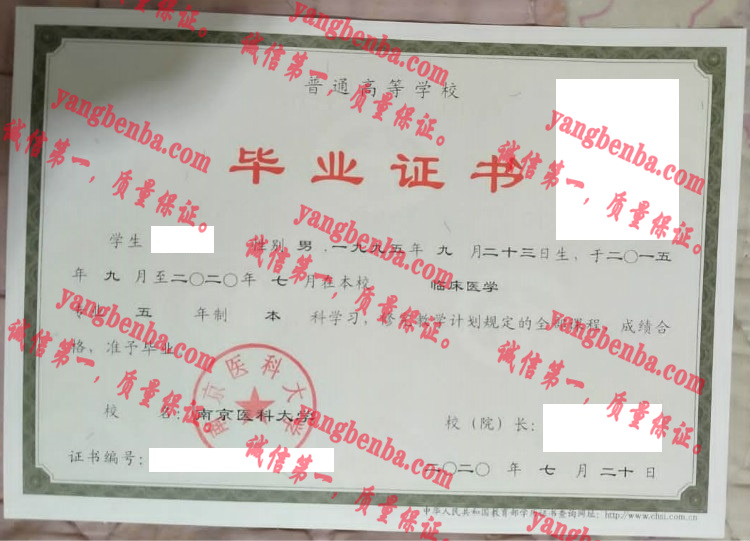 普通高等学校
毕业证书
学生 性别 男 ,一九九五年 九 月二十三日生，于二〇一五
年 九 月至二〇二〇年 七 月在本校 临床医学
专业 五 年制 本 科学习，修完教学计划规定的全部课程，成绩合
格，准予毕业
南京医科大学
校 名：南京医科大学
校（院）长：
证书编号：
二〇二〇 年 七 月 二十日
中华人民共和国教育部学历证书查询网址：http://www.chsi.com.cn
yangbenba.com
诚信第一，质量保证。
yangbenba.com
诚信第一，质量保证。
yangbenba.com
诚信第一，质量保证。
yangbenba.com
诚信第一，质量保证。
yangbenba.com
诚信第一，质量保证。
yangbenba.com
诚信第一，质量保证。
yangbenba.com
诚信第一，质量保证。
yangbenba.com
诚信第一，质量保证。